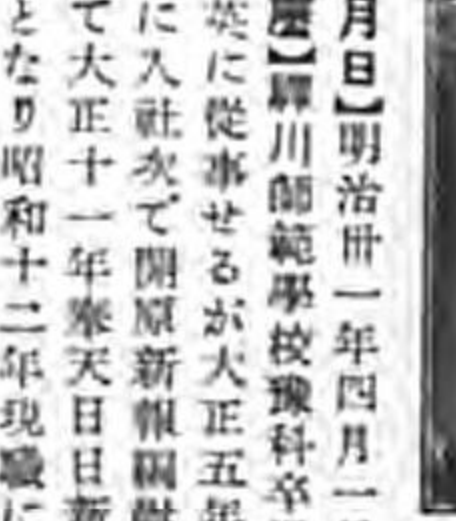 月日】明治卅一年四月一
歴】川師範學校豫科卒
に從事せるが大正五年
に入社次で開原新報
て大正十一年奉天日日新
となり昭和十二年現職に